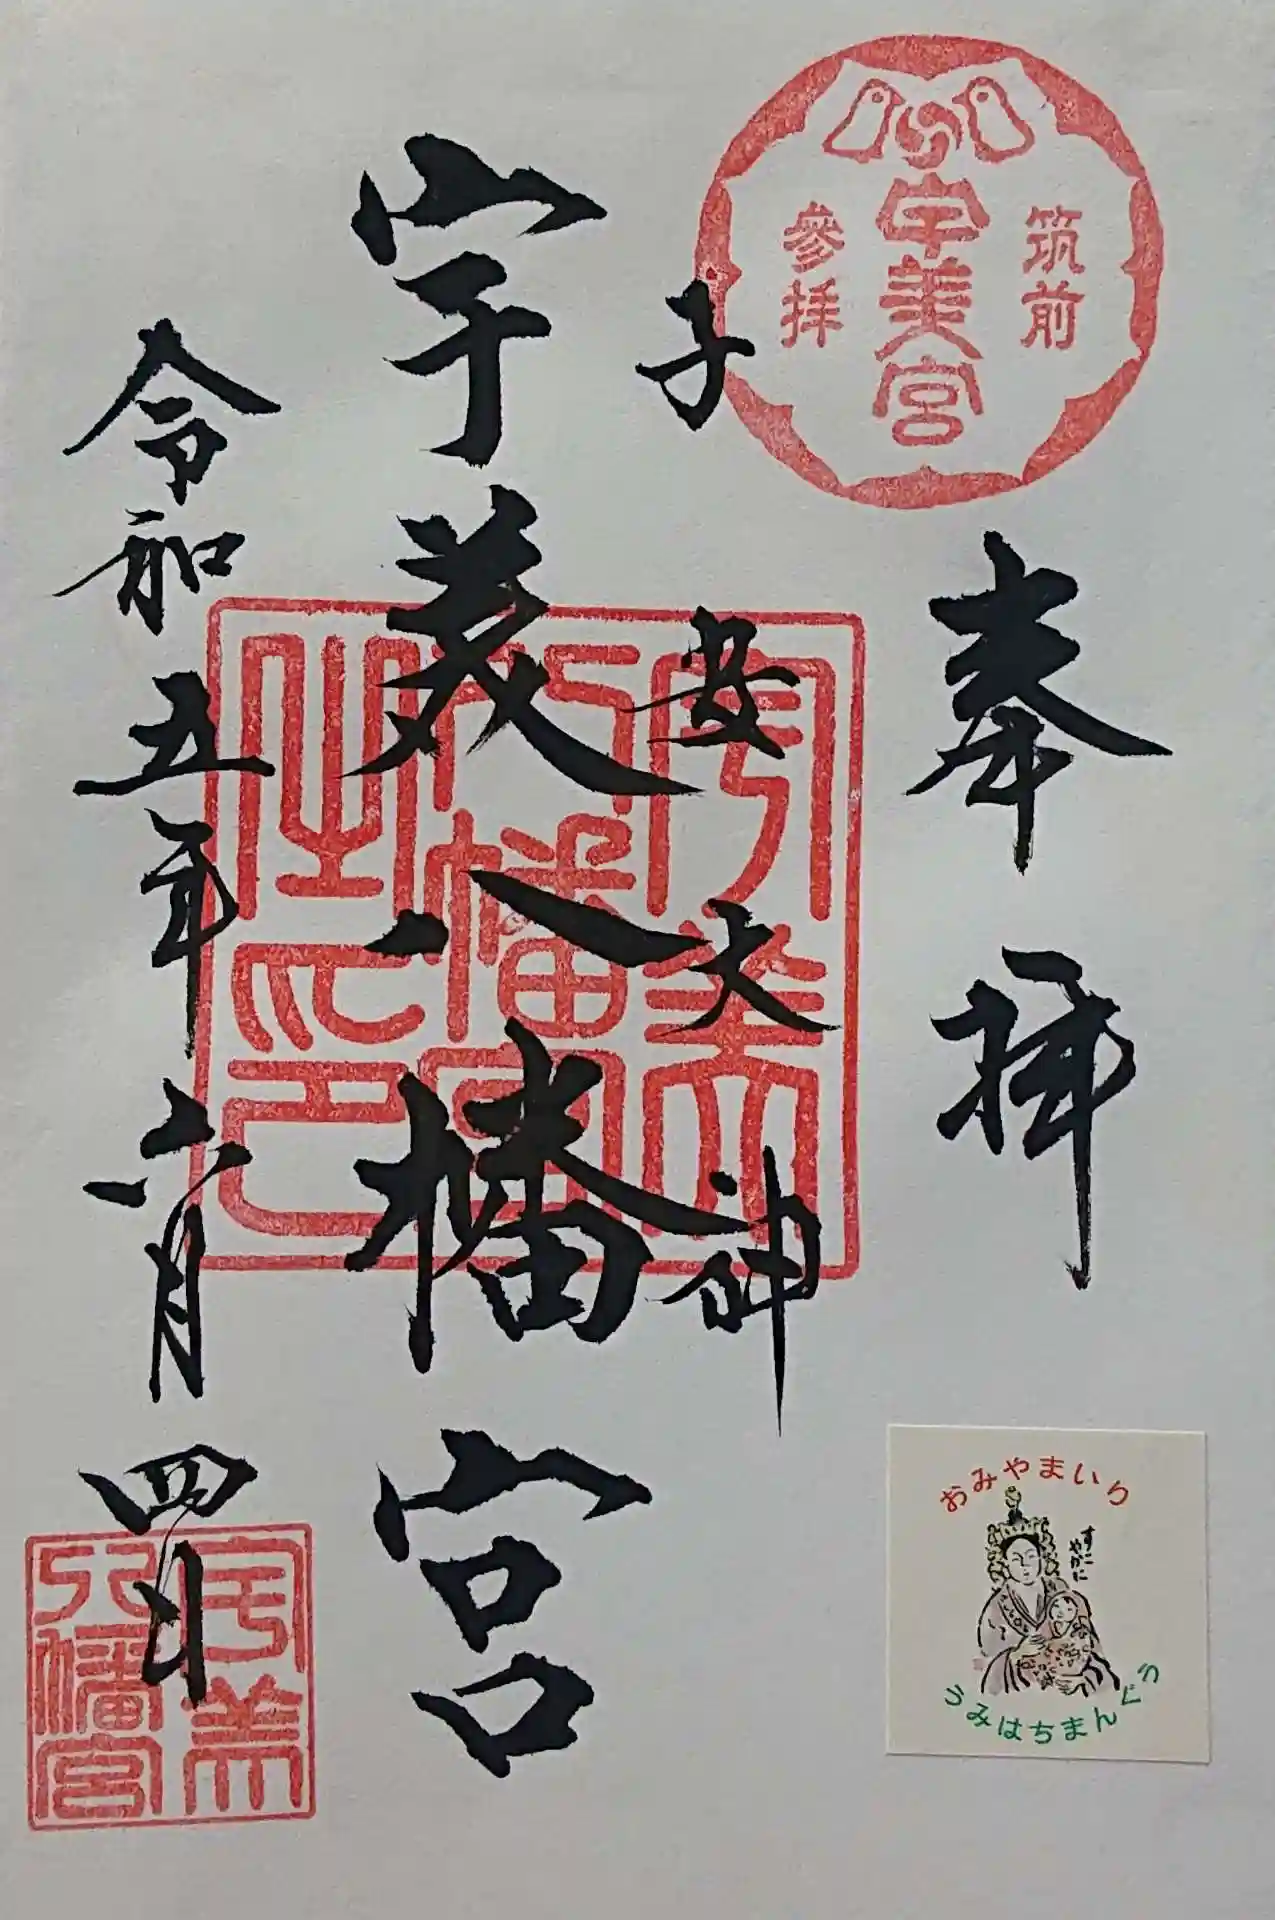 筑前
宇美宮
參拝
奉拝
子安大神
宇美八幡宮
令和五年六月四日
宇美
八幡宮
之印
宇美
八幡宮
おみやまいり
すこ
やかに
うみはちまんぐう